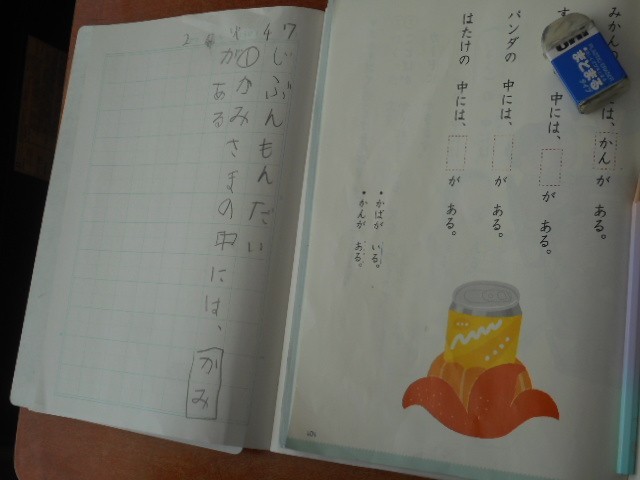 4 7
じぶんもんだい
①かみさまの中には、かみ
がある
みかんの 中には、かんが ある。
中には、 が ある。
パンダの 中には、 が ある。
はたけの 中には、 が ある。
・かばが いる。
・かんが ある。
まとまる